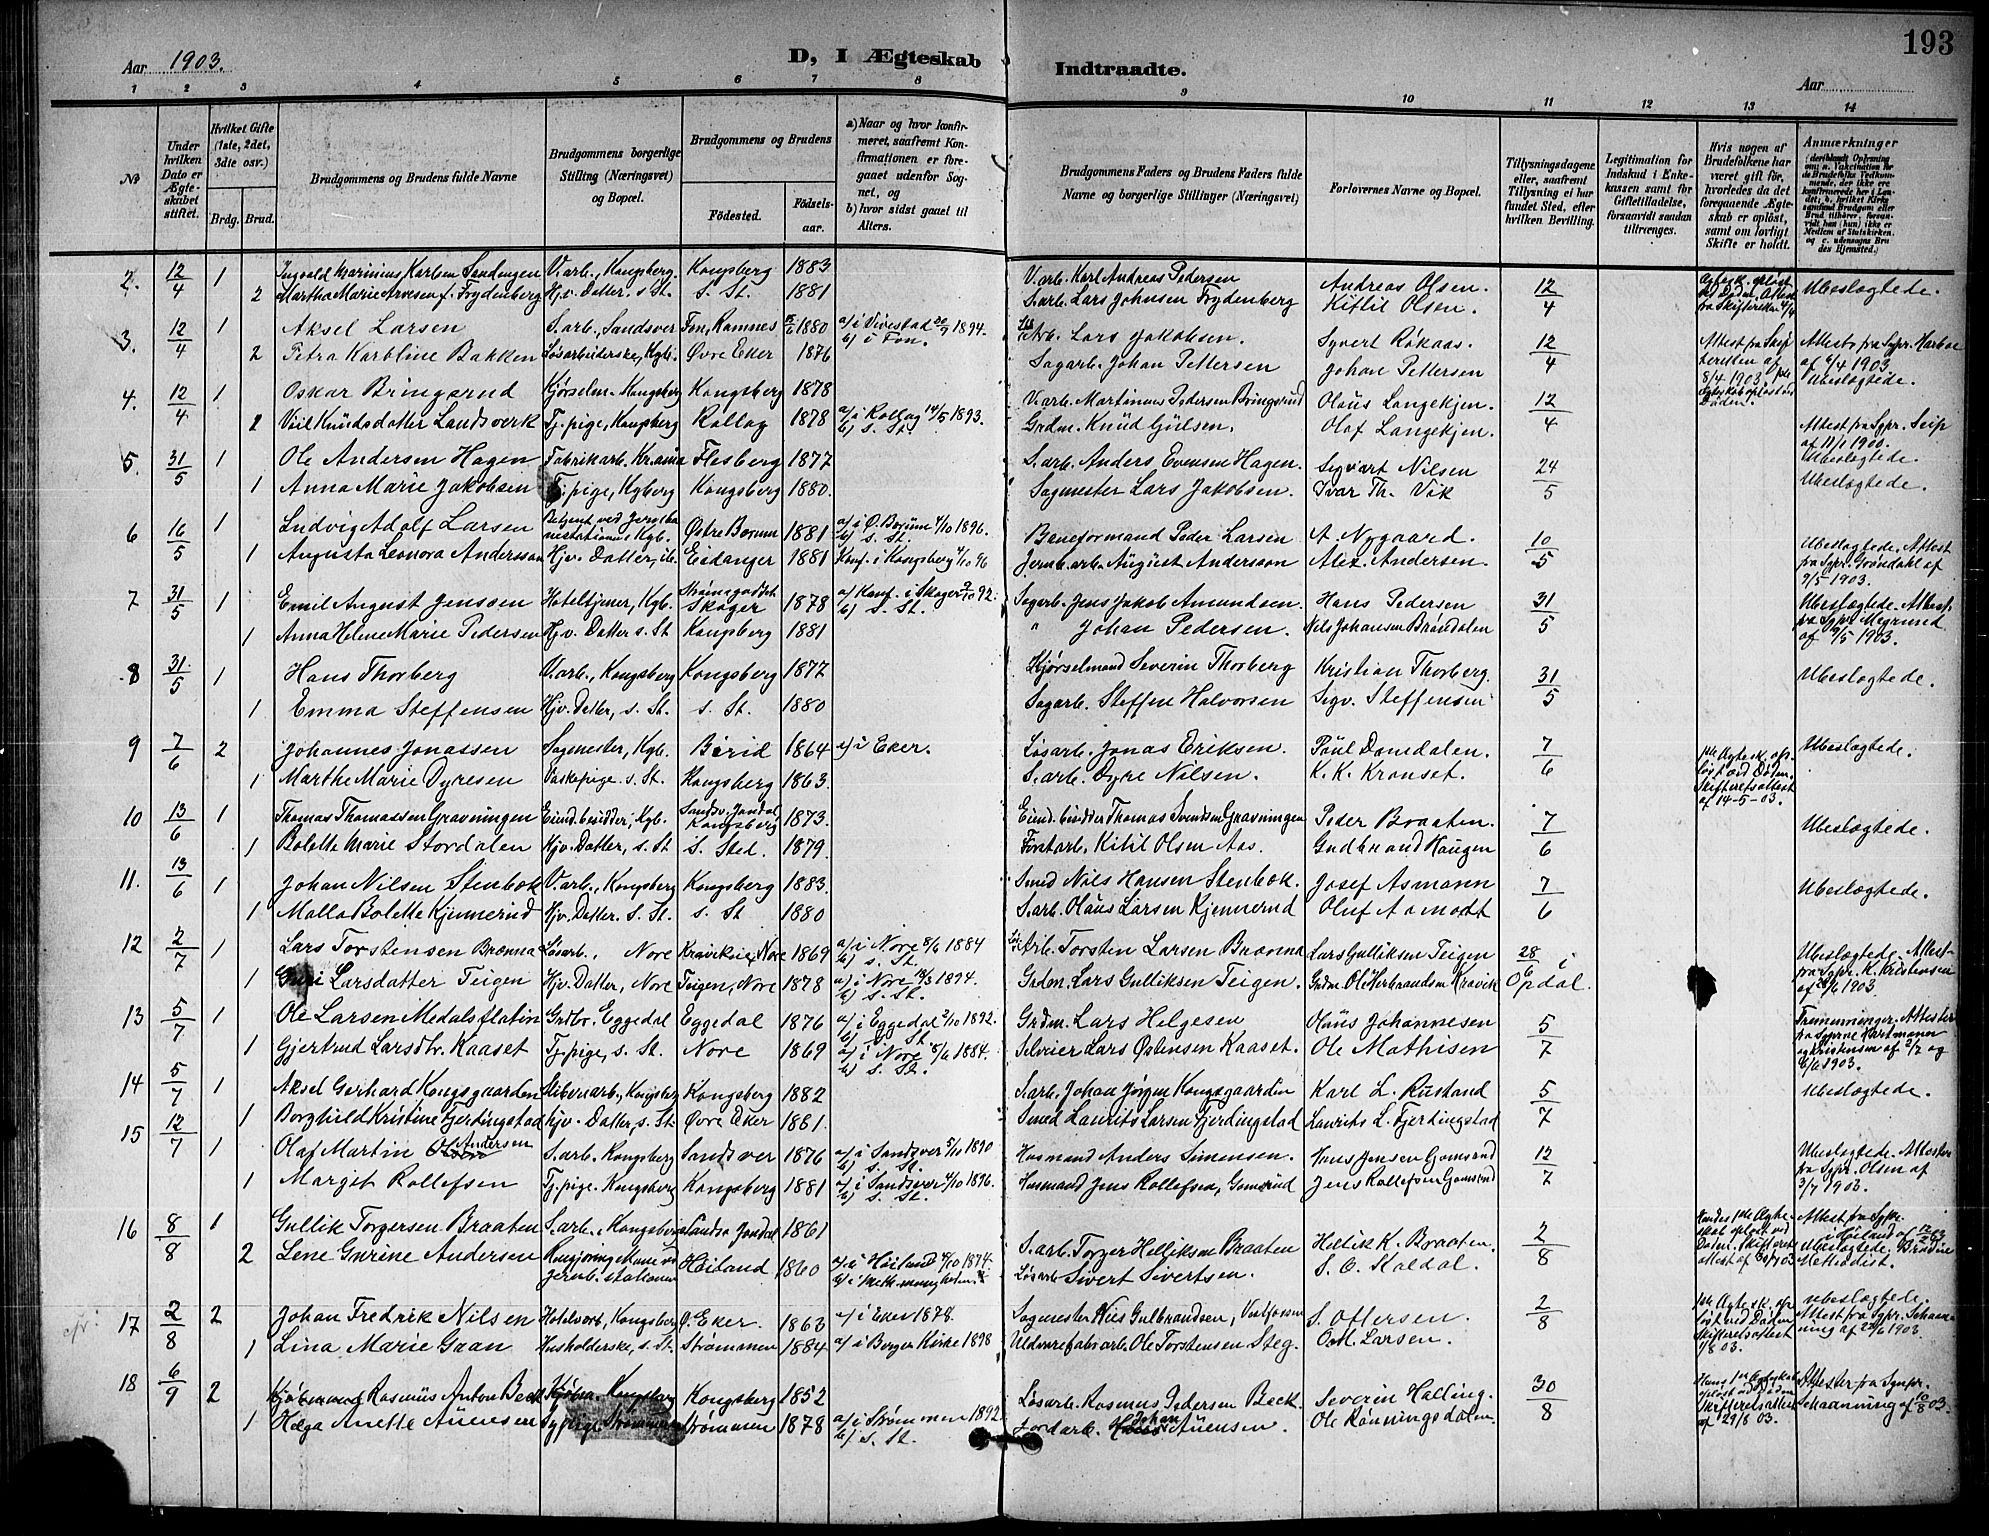 193
Aar 1903.
D, I Ægteskab Indtraadte.
Aar
1 2 3 4 5 6 7 8 9 10 11 12 13 14
No
Under hvilken Dato er Ægteskabet stiftet.
Hvilket Gifte (1ste, 2det, 3die osv.)
Brdg. Brud.
Brudgommens og Brudens fulde Navne
Brudgommens borgerlige Stilling (Næringsvei) og Bopæl.
Brudgommens og Brudens
Fødested. Fødsels-aar.
a) Naar og hvor konfirmeret, saafremt Konfirmationen er foregaaet udenfor Sognet, og
b) hvor sidst gaaet til Alters.
Brudgommens Faders og Brudens Faders fulde Navne og borgerlige Stillinger (Næringsvei)
Forlovernes Navne og Bopæl.
Tillysningsdagene eller, saafremt Tillysning ei har fundet Sted, efter hvilken Bevilling.
Legitimation for Indskud i Enkekassen samt for Giftetilladelse, forsaavidt saadan tiltrænges.
Hvis nogen af Brudefolkene har været gift før, hvorledes da det foregaaende Ægteskab er opløst, samt om lovligt Skifte er holdt.
Anmærkninger
2. 12/4 1 Ingvald Marinius Karlsen Sandengen V.arb., Kongsberg. Kongsberg 1883 V.arb. Karl Andreas Pedersen Andreas Olsen. 12/4 Ubeslægtede.
2 Martha Marie Arvesen f. Frydenberg Hjv. Datter. s. St. s. St. 1881 S.arb. Lars Johnsen Frydenberg Kittil Olsen.
3. 12/4 1 Aksel Larsen S.arb., Sandsver Fon, Ramnes 1880 a) i Vivestad 1894. b) i Fon. Arb. Lars Jakobsen. Syvert Røkaas. 12/4
2 Petra Karoline Bakken Løsarbeiderske, Kgb. Øvre Eker 1876 Sagarb. Johan Pettersen Johan Pettersen
4. 12/4 1 Oskar Bringsrud Kjørselm. Kongsberg Kongsberg 1878 V.arb. Martinius Pedersen Bringsrud Olaus Langekjen. 12/4 Ubeslægtede.
2 Knudsdatter Landsverk Tj.pige, Kongsberg Rollag 1878 a) i Rollag 14/5 1893. b) s. St. Grdm. Knud Gulsen. Olaf Langekjen. Attest fra Sgpr. Seip af 11/1 1900.
5. 31/5 1 Ole Andersen Hagen Fabrikarb. Kr.ania Flesberg 1877 S.arb. Anders Evensen Hagen. Sigvart Nilsen 24/5 Ubeslægtede.
1 Anna Marie Jakobsen Tj.pige, Kgberg Kongsberg 1880. Sagmester Lars Jakobsen. Ivar Th. Vik Ubeslægtede.
6 16/5 1 Ludvig Adolf Larsen Betjent ved Jernbanestationen Kgb. Østre Borum 1881 a) i Ø. Borum 4/10 1896. b) s. St. Baneformand Peder Larsen A. Nygaard. 10/5
1 Augusta Leonora Andersson Hjv. Datter, ib. Eidanger 1881 Konf. i Kongsberg 4/10 96 Jernb.arb. August Andersson Alex. Andersen. Ubeslægtede. Attest fra Sgpr. Grøndahl af 9/5 1903.
7 31/5 1 Emil August Jensen Hoteltjener, Kgb. Strømsgodset Skoger 1878 a) Konf. i Skoger 92. b) s. St. Sagarb. Jens Jakob Amundsen. Hans Pedersen 31/5 Ubeslægtede. Attest
1 Anna Helene Marie Pedersen Hjv. Datter s. St. Kongsberg 1881 " Johan Pedersen. Nils Johansen Brøndalen af 9/5 1903.
8 31/5 1 Hans Thorberg V.arb., Kongsberg Kongsberg 1877 Kjørselmand Severin Thorberg Kristian Thorberg. 31/5 Ubeslægtede.
1 Emma Steffensen Hjv. Datter, s. St. s. St. 1880 Sagarb. Steffen Halvorsen Sigv. Steffensen
9 7/6 2 Johannes Jonassen Sagmester, Kgb. Birid 1864 a) i Eker. Løsarb. Jonas Eriksen. Paul Damdalen. 7/6 1ste Ægtesk. opløst ved Døden. Skifteretsattest af 14-5-03. Ubeslægtede.
1 Marthe Marie Dyresen Vaskepige. s. St. Kongsberg 1863. S.arb. Dyre Nilsen. K. K. Kronset.
10 13/6 1 Thomas Thomassen Gravningen Eiend.besidder, Kgb. Sandsv. Jondal, Kongsberg 1873. Eiend.besidder Thomas Svendsen Gravningen Peder Braaten. 7/6 Ubeslægtede.
1 Bolette Marie Stordalen Hjv. Datter, s. St. s. Sted. 1879. Forstarb. Kitil Olsen Aas. Gudbrand Haugen
11. 13/6 1 Johan Nilsen Stenbok V.arb., Kongsberg Kongsberg 1883. Smed Nils Hansen Stenbok. Josef Asmann 7/6 Ubeslægtede.
1 Malla Bolette Kjennerud Hjv. Datter. s. St. s. St. 1880 S.arb. Olaus Larsen Kjennerud Oluf Aamodt
12 2/7 1 Lars Torstensen Brænna Løsarb., Nore Kravikeie, Nore 1869 a) i Nore 8/6 1884 b) s. St. Arb. Torsten Larsen Brænna Lars Gulliksen Teigen 28/6 i Opdal. Ubeslægtede. Attest fra Sgpr. K. Kristensen af 1903.
1 Guri Larsdatter Teigen Hjv. Datter, Nore Teigen, Nore 1878 a) i Nore 1894. b) s. St. Grdm. Lars Gulliksen Teigen. Grdm. Ole Herbrandsen Kravik
13 5/7 1 Ole Larsen Medalsflatin Grdbr. Eggedal Eggedal 1876 a) i Eggedal 2/10 1892. b) s. St. Grdm. Lars Helgesen Olaus Johannesen 5/7 Tremenninger. Attester fra Sgprne Hartmann og Kristensen af 2/7 og 1903.
1 Gjertrud Larsdtr. Kaaset Tj.pige, s. St. Nore 1869 a) i Nore 8/6 1884. b) s. St. Selveier Lars Østensen Kaaset. Ole Mathisen
14 5/7 1 Aksel Gerhard Kongsgaarden Sliberiarb., Kongsberg Kongsberg 1882 S.arb. Johan Jørgen Kongsgaarden Karl L. Rustand 5/7 Ubeslægtede.
1 Borghild Kristine Fjerdingstad Hjv. Datter, s. St. Øvre Eker 1881. Smed Laurits Larsen Fjerdingstad Laurits L. Fjerdingstad
15 12/7 1 Olaf Martin Andersen S.arb. Kongsberg Sandsver 1876 a) i Sandsver 5/10 1890 b) s. St. Husmand Anders Simensen. Hans Jensen Gomsrud 12/7 Ubeslægtede. Attester fra Sgpr. Olsen af 3/7 1903.
1 Margit Rollefsen Tj.pige. Kongsberg Kongsberg 1881 a) i Sandsver 4/10 1896. b) s. St. Husmand Jens Rollefsen, Gomsrud Jens Rollefsen Gomsrud
16 8/8 1 Gullik Torgersen Braaten S.arb., Kongsberg Sandsv. Jondal 1861 S.arb. Torger Helliksen Braaten Hellik K. Braaten. 2/8 Attest fra Sgpr. i Høiland Ubeslægtede. Bruden Methodist.
2 Lene Gurine Andersen Rengjøringskone ved jernb. stationen Høiland 1860 a) i Høiland 1874. Løsarb Sivert Sivertsen. S. O. Kaldal.
17 2/8 2 Johan Fredrik Nilsen Hotelarb, Kongsberg Ø. Eker. 1863 a) i Eker 1878. Sagmester Nils Gulbrandsen, Vestfossen S. Ottersen. 2/8 1ste Ægtesk. opløst ved Døden Skifteretsattest 1/8 03. Ubeslægtede. Attest fra Sgpr. Schaanning af 1903.
1 Lina Marie Gaan Husholderske, s. St. Strømmen 1884 a) i Borger Kirke 1898 Uldvarefabrarb. Ole Torstensen Steg. Ost. Larsen.
18 6/9 2 Kjøbmand Rasmus Anton Beck Kjøbm. Kongsberg Kongsberg 1852 Løsarb. Rasmus Pedersen Beck. Severin Halling. 30/8 Hans 1ste Ægteskab opløst ved Døden Skifteretsattest af 29/8 03. Attester fra Sgpr. Schaanning af 10/8 03.
1 Helga Anette Auensen Strømmen Strømmen 1878 a) i Strømmen 1892 b) s. St. Jordarb. Johan Auensen. Ole Rønningsdalen